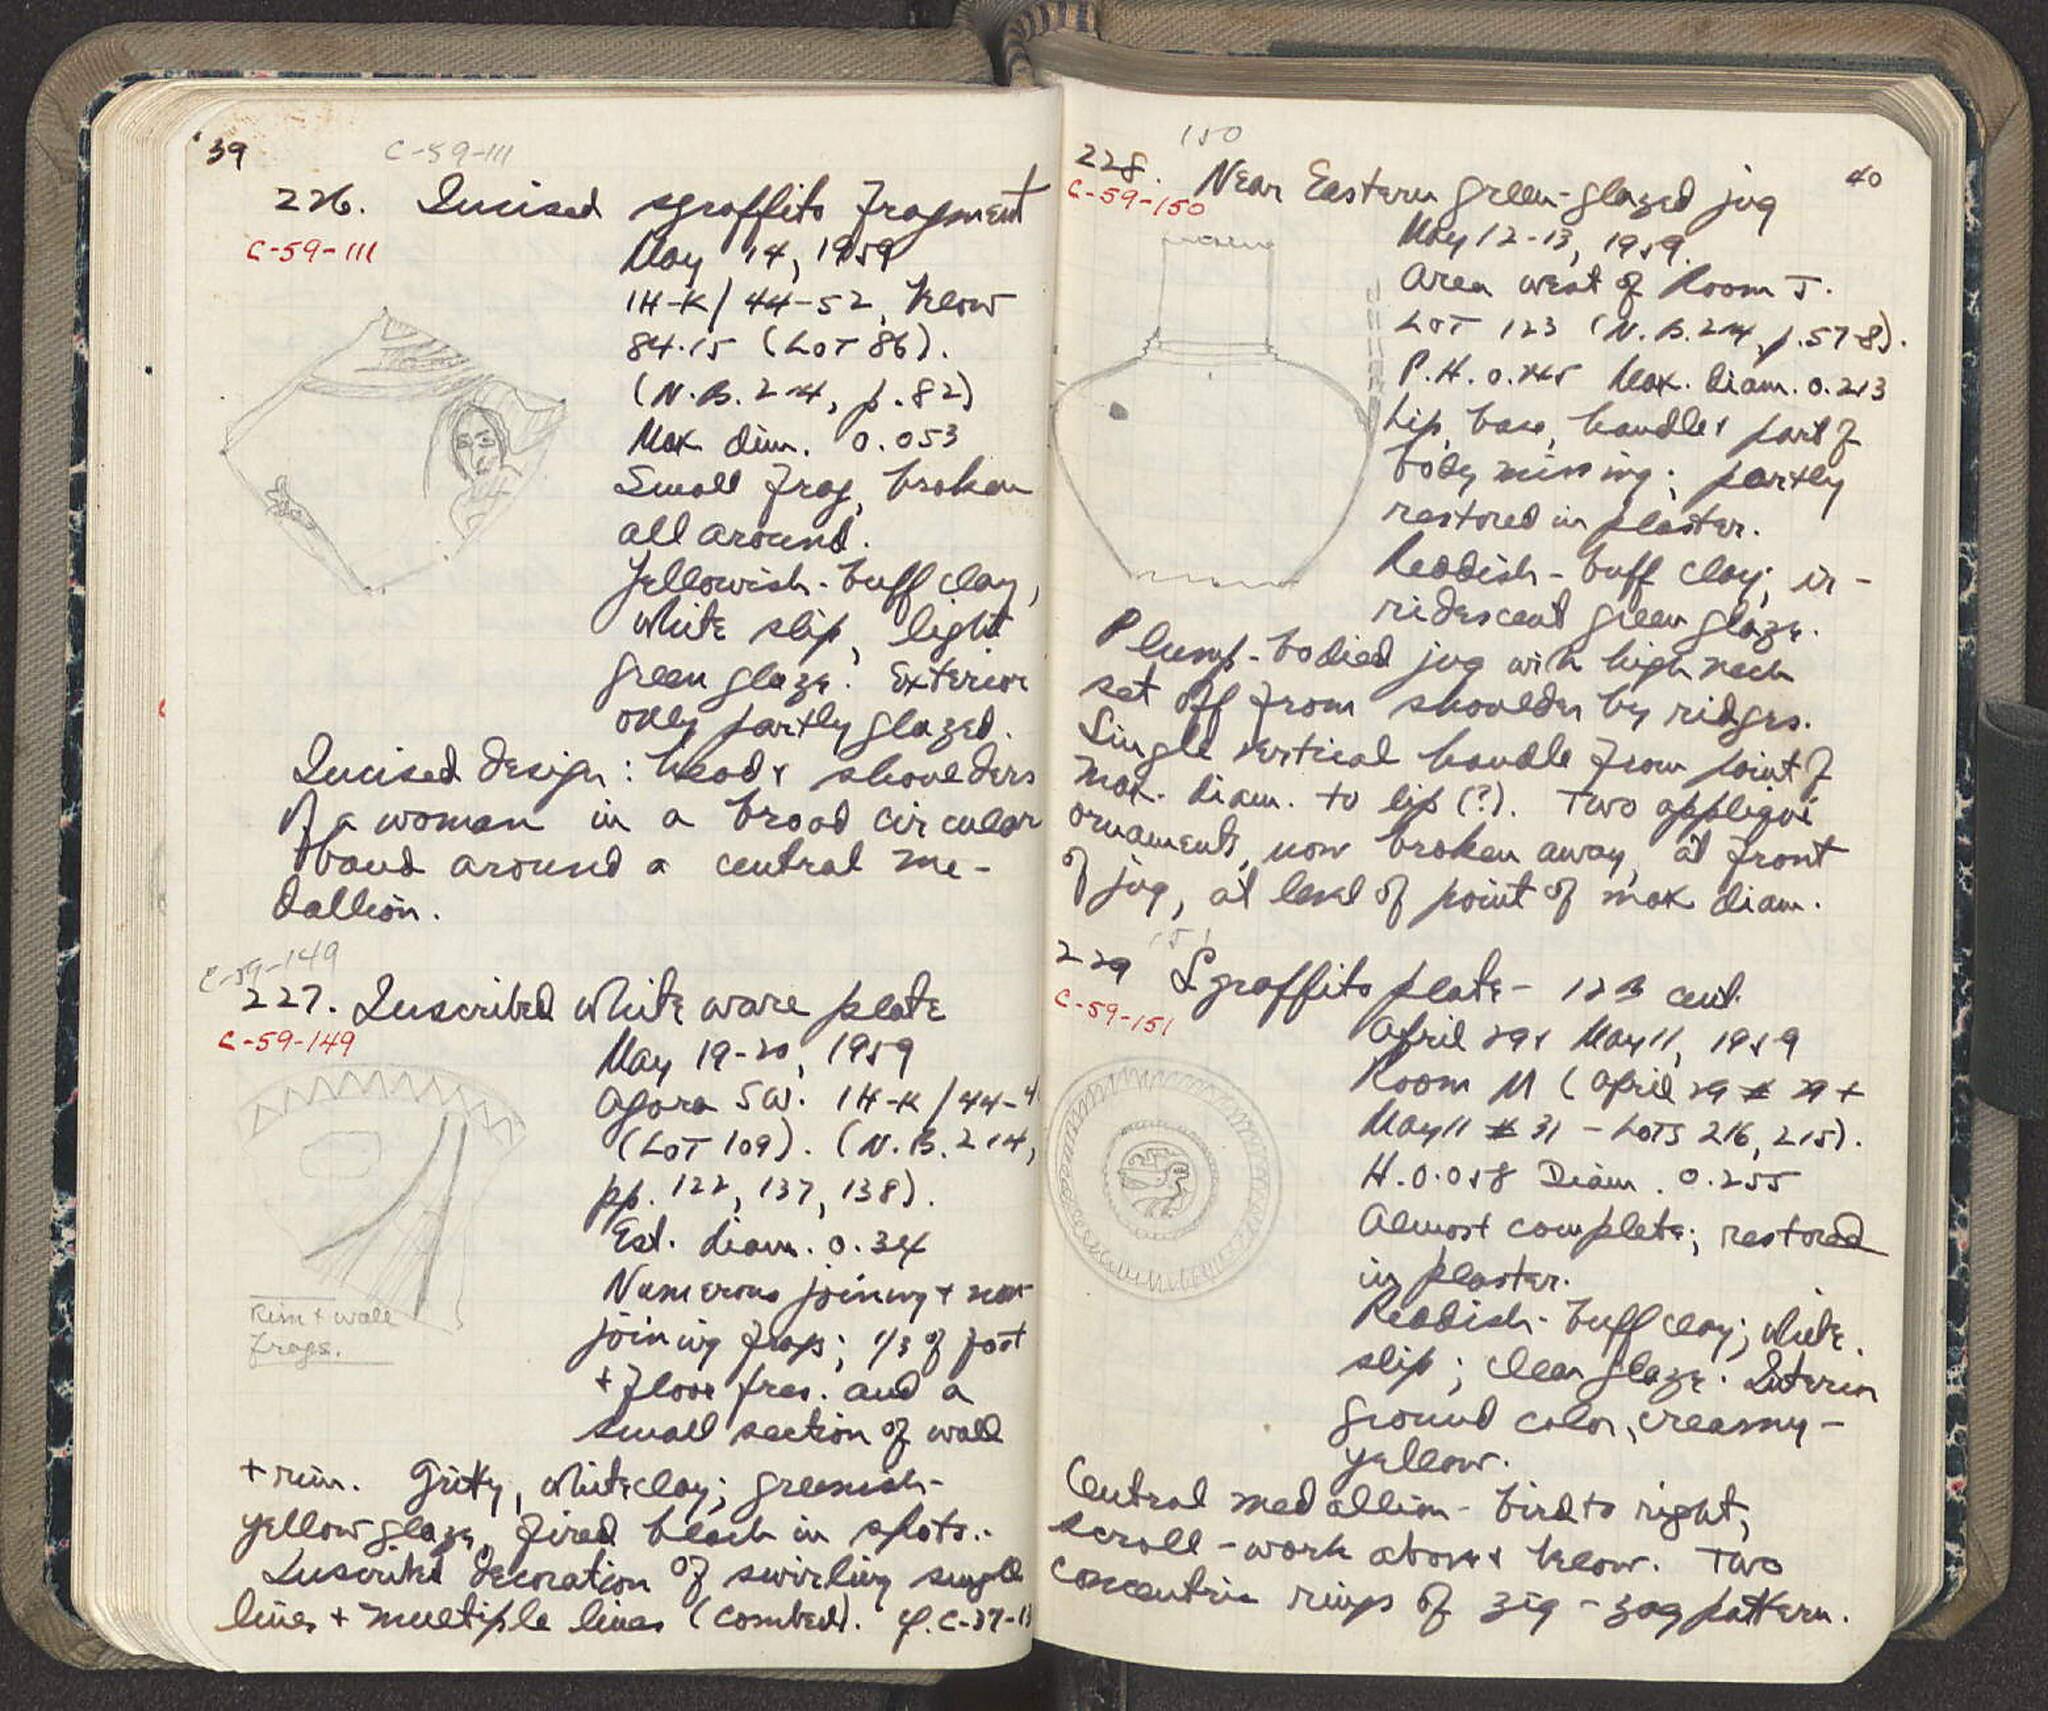 39
C-59-111
226. Incised sgraffito fragment
C-59-111
May 14, 1959
1H-K/44-52, below
84.15 (Lot 86).
(N.B. 214, p. 82)
Max dim. 0.053
Small frag, broken
all around.
Yellowish-buff clay,
white slip, light
green glaze. Exterior
only partly glazed.
Incised design: head & shoulders
of a woman in a broad circular
band around a central me-
dallion.
C-59-149
227. Inscribed white ware plate
C-59-149
May 19-20, 1959
Agora SW. 1H-K/44-4
(Lot 109). (N.B. 214,
pp. 122, 137, 138).
Est. diam. 0.34
Numerous joining + non-
joining frags; 1/3 of foot
+ floor pres. and a
small section of wall
+ rim. Gritty, white clay; greenish-
yellow glaze, fired black in spots.
Inscribed decoration of swirling single
lines + multiple lines (combed). cf. C-37-1
Rim + wall
frags.
40
150
228. Near Eastern green-glazed jug
C-59-150
May 12-13, 1959.
Area west of Room J.
Lot 123 (N.B. 214, p. 57-8).
P.H. Max. diam. 0.213
Lip, base, handle & part of
body missing; partly
restored in plaster.
Reddish-buff clay; ir-
ridescent green glaze.
Plump-bodied jug with high neck
set off from shoulder by ridges.
Single vertical handle from point of
max. diam. to lip (?). Two appliqué
ornaments, now broken away, at front
of jug, at level of point of max diam.
151
229 Sgraffito plate - 12th cent.
C-59-151
April 29 & May 11, 1959
Room M (April 29 # 29 +
May 11 # 31 - Lots 216, 215).
H. 0.058 Diam. 0.255
Almost complete; restored
in plaster.
Reddish-buff clay; white
slip; clear glaze. Interior
ground color, creamy-
yellow.
Central medallion - bird to right,
scroll-work above & below. Two
concentric rings of zig-zag pattern.